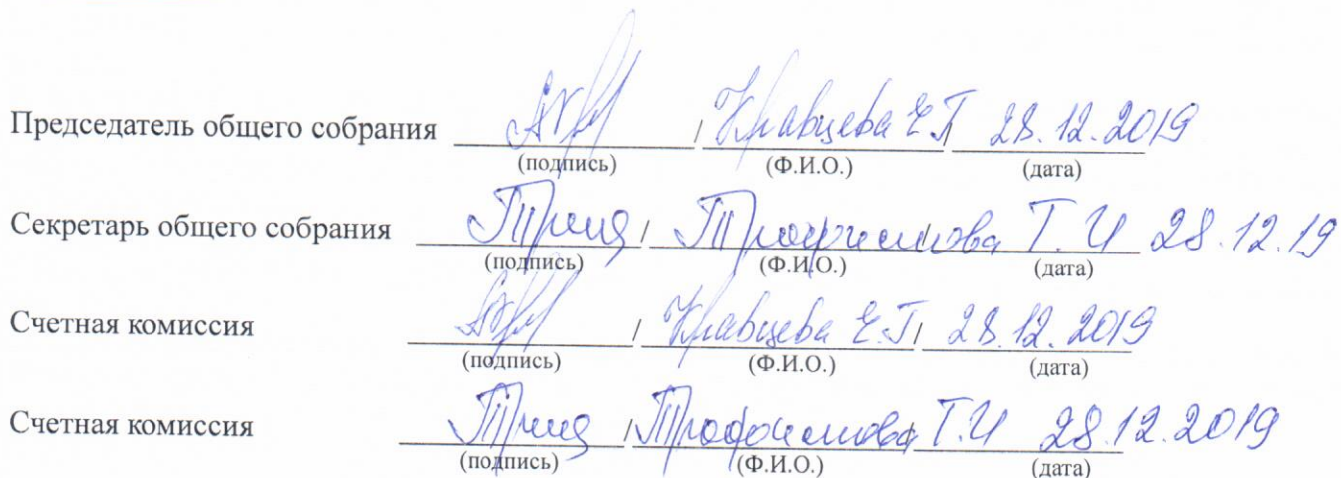 Председатель общего собрания / Кравцева Е.Г / 28.12.2019
(подпись) (Ф.И.О.) (дата)
Секретарь общего собрания / Трофимова Т.И 28.12.19
(подпись) (Ф.И.О.) (дата)
Счетная комиссия / Кравцева Е.Г / 28.12.2019
(подпись) (Ф.И.О.) (дата)
Счетная комиссия / Трофимова Т.И 28.12.2019
(подпись) (Ф.И.О.) (дата)